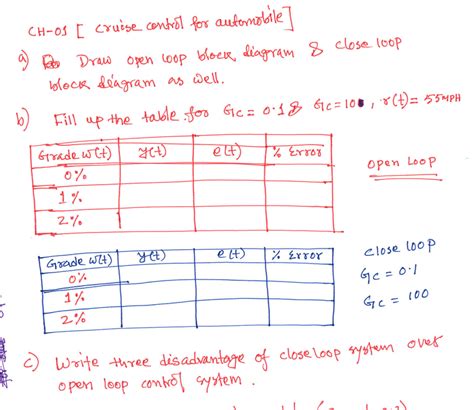 CH-01 [ Cruise control for automobile]
a) Draw open loop block diagram & close loop
block diagram as well.
b) Fill up the table for Gc = 0.1 & Gc = 100, r(t) = 55MPH
Grade w(t) y(t) e(t) % Error
0%
1%
2%
open Loop
Grade w(t) y(t) e(t) % Error
0%
1%
2%
close loop
Gc = 0.1
Gc = 100
c) Write three disadvantage of closeloop system over
open loop control system.